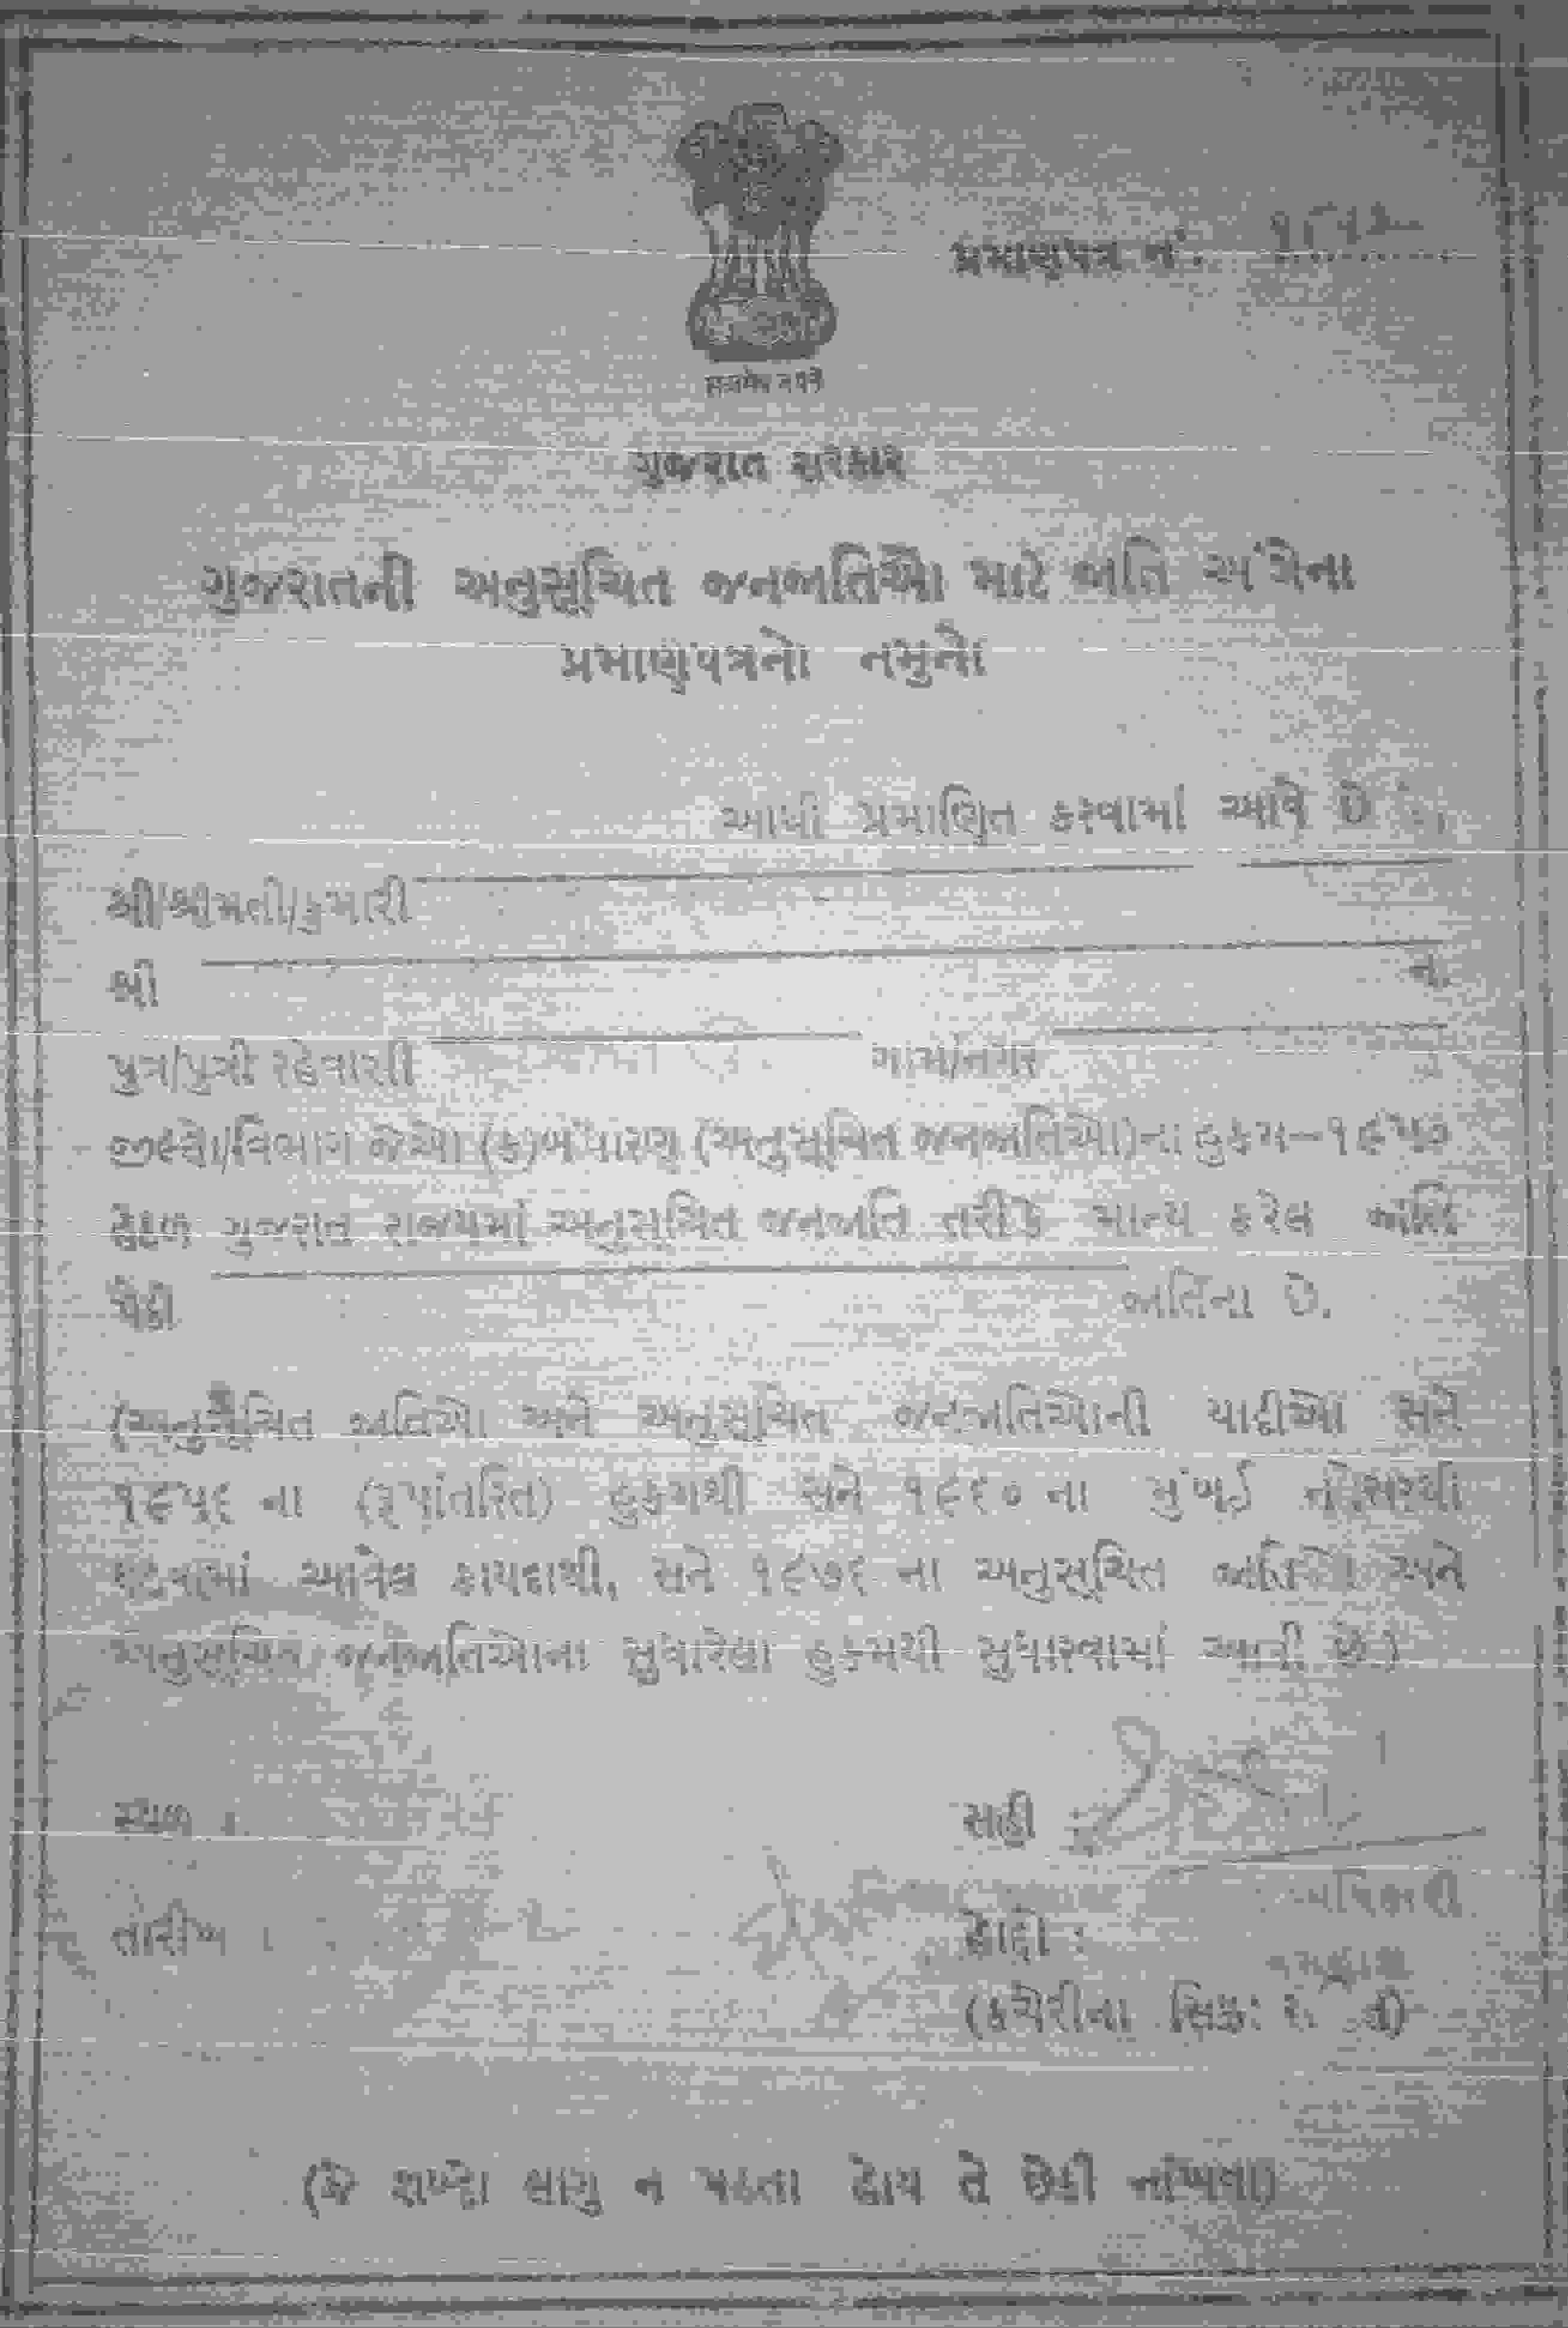 પ્રમાણપત્ર નં.
सत्यमेव जयते
ગુજરાત સરકાર
ગુજરાતની અનુસૂચિત જનજાતિઓ માટે જાતિ અંગેના
પ્રમાણપત્રનો નમુનો
આથી પ્રમાણિત કરવામાં આવે છે
શ્રી/શ્રીમતી/કુમારી
શ્રી
પુત્ર/પુત્રી રહેવાસી ગામ/નગર
જીલ્લો/વિભાગ જેઓ (ક)બંધારણ (અનુસૂચિત જનજાતિઓ)ના હુકમ–૧૯૫૦
હેઠળ ગુજરાત રાજ્યમાં અનુસૂચિત જનજાતિ તરીકે માન્ય કરેલ જાતિ
પૈકી જાતિના છે.
(અનુસૂચિત જાતિઓ અને અનુસૂચિત જનજાતિઓની યાદીઓ સને
૧૯૫૬ ના (રૂપાંતરિત) હુકમથી સને ૧૯૬૦ ના મુંબઈ
આવેલ કાયદાથી, સને ૧૯૭૬ ના અનુસૂચિત જાતિઓ અને
અનુસૂચિત જનજાતિઓના સુધારેલા હુકમથી સુધારવામાં આવી છે.)
સ્થળ :
સહી :
તારીખ :
હોદ્દો :
(કચેરીના
(જે શબ્દો લાગુ ન પડતા હોય તે છેકી નાંખવા)